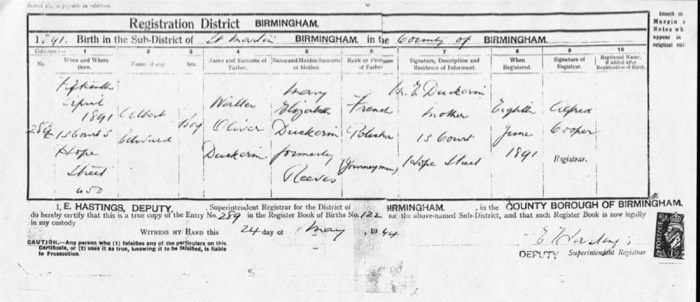 Registration District BIRMINGHAM.
1891. Birth in the Sub-District of St Martin BIRMINGHAM, in the County of BIRMINGHAM.
Columns:— 1 2 3 4 5 6 7 8 9 10
No. When and Where Born. Name, if any Sex. Name and Surname of Father. Name and Maiden Surname of Mother. Rank or Profession of Father Signature, Description and Residence of Informant. When Registered. Signature of Registrar. Baptismal Name, if added after Registration of Birth.
289 Fifteenth April 1891 15 Court 5 Hope Street uSD
Albert Edward
Boy
Walter Oliver Duckerin
Mary Elizabeth Duckerin formerly Reeves
French Polisher (Journeyman)
M. E. Duckerin Mother 15 Court Hope Street
Eighth June 1891
Alfred Cooper Registrar.
I, E. HASTINGS, DEPUTY Superintendent Registrar for the District of BIRMINGHAM, in the COUNTY BOROUGH OF BIRMINGHAM.
do hereby certify that this is a true copy of the Entry No. 289 in the Register Book of Births No. 122 for the above-named Sub-District, and that such Register Book is now legally
in my custody
WITNESS MY HAND this 24 day of May, 1944
CAUTION.—Any person who (1) falsifies any of the particulars on this
Certificate, or (2) uses it as true, knowing it to be falsified, is liable
to Prosecution
E Hastings
DEPUTY Superintendent Registrar